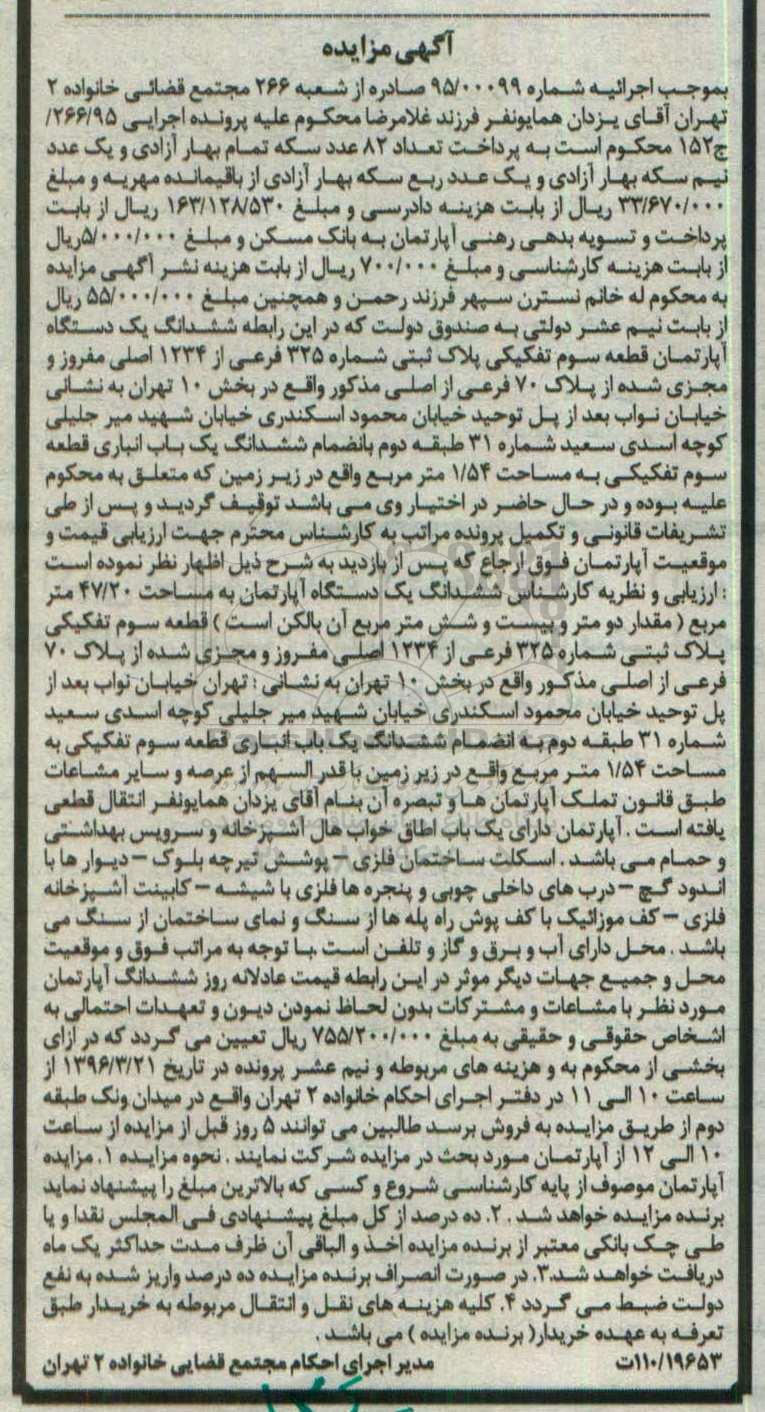 آگهی مزایده
بموجب اجرائیه شماره ۹۵/۰۰۰۹۹ صادره از شعبه ۲۶۶ مجتمع قضائی خانواده ۲
تهران آقای یزدان همایونفر فرزند غلامرضا محکوم علیه پرونده اجرایی ۲۶۶/۹۵/
ج۱۵۲ محکوم است به پرداخت تعداد ۸۲ عدد سکه تمام بهار آزادی و یک عدد
نیم سکه بهار آزادی و یک عدد ربع سکه بهار آزادی از باقیمانده مهریه و مبلغ
۳۳/۶۷۰/۰۰۰ ریال از بابت هزینه دادرسی و مبلغ ۱۶۳/۱۲۸/۵۳۰ ریال از بابت
پرداخت و تسویه بدهی رهنی آپارتمان به بانک مسکن و مبلغ ۵/۰۰۰/۰۰۰ریال
از بابت هزینه کارشناسی و مبلغ ۷۰۰/۰۰۰ ریال از بابت هزینه نشر آگهی مزایده
به محکوم له خانم نسترن سپهر فرزند رحمن و همچنین مبلغ ۵۵/۰۰۰/۰۰۰ ریال
از بابت نیم عشر دولتی به صندوق دولت که در این رابطه ششدانگ یک دستگاه
آپارتمان قطعه سوم تفکیکی پلاک ثبتی شماره ۳۲۵ فرعی از ۱۲۳۴ اصلی مفروز و
مجزی شده از پلاک ۷۰ فرعی از اصلی مذکور واقع در بخش ۱۰ تهران به نشانی
خیابان نواب بعد از پل توحید خیابان محمود اسکندری خیابان شهید میر جلیلی
کوچه اسدی سعید شماره ۳۱ طبقه دوم بانضمام ششدانگ یک باب انباری قطعه
سوم تفکیکی به مساحت ۱/۵۴ متر مربع واقع در زیر زمین که متعلق به محکوم
علیه بوده و در حال حاضر در اختیار وی می باشد توقیف گردید و پس از طی
تشریفات قانونی و تکمیل پرونده مراتب به کارشناس محترم جهت ارزیابی قیمت و
موقعیت آپارتمان فوق ارجاع که پس از بازدید به شرح ذیل اظهار نظر نموده است
: ارزیابی و نظریه کارشناس ششدانگ یک دستگاه آپارتمان به مساحت ۴۷/۲۰ متر
مربع ( مقدار دو متر و بیست و شش متر مربع آن بالکن است ) قطعه سوم تفکیکی
پلاک ثبتی شماره ۳۲۵ فرعی از ۱۲۳۴ اصلی مفروز و مجزی شده از پلاک ۷۰
فرعی از اصلی مذکور واقع در بخش ۱۰ تهران به نشانی : تهران خیابان نواب بعد از
پل توحید خیابان محمود اسکندری خیابان شهید میر جلیلی کوچه اسدی سعید
شماره ۳۱ طبقه دوم به انضمام ششدانگ یک باب انباری قطعه سوم تفکیکی به
مساحت ۱/۵۴ متر مربع واقع در زیر زمین با قدر السهم از عرصه و سایر مشاعات
طبق قانون تملک آپارتمان ها و تبصره آن بنام آقای یزدان همایونفر انتقال قطعی
یافته است . آپارتمان دارای یک باب اطاق خواب هال آشپزخانه و سرویس بهداشتی
و حمام می باشد . اسکلت ساختمان فلزی – پوشش تیرچه بلوک – دیوار ها با
اندود گچ – درب های داخلی چوبی و پنجره ها فلزی با شیشه – کابینت آشپزخانه
فلزی – کف موزائیک با کف پوش راه پله ها از سنگ و نمای ساختمان از سنگ می
باشد . محل دارای آب و برق و گاز و تلفن است .با توجه به مراتب فوق و موقعیت
محل و جمیع جهات دیگر موثر در این رابطه قیمت عادلانه روز ششدانگ آپارتمان
مورد نظر با مشاعات و مشترکات بدون لحاظ نمودن دیون و تعهدات احتمالی به
اشخاص حقوقی و حقیقی به مبلغ ۷۵۵/۲۰۰/۰۰۰ ریال تعیین می گردد که در ازای
بخشی از محکوم به و هزینه های مربوطه و نیم عشر پرونده در تاریخ ۱۳۹۶/۳/۲۱ از
ساعت ۱۰ الی ۱۱ در دفتر اجرای احکام خانواده ۲ تهران واقع در میدان ونک طبقه
دوم از طریق مزایده به فروش برسد طالبین می توانند ۵ روز قبل از مزایده از ساعت
۱۰ الی ۱۲ از آپارتمان مورد بحث در مزایده شرکت نمایند . نحوه مزایده ۱. مزایده
آپارتمان موصوف از پایه کارشناسی شروع و کسی که بالاترین مبلغ را پیشنهاد نماید
برنده مزایده خواهد شد . ۲. ده درصد از کل مبلغ پیشنهادی فی المجلس نقدا و یا
طی چک بانکی معتبر از برنده مزایده اخذ و الباقی آن ظرف مدت حداکثر یک ماه
دریافت خواهد شد.۳. در صورت انصراف برنده مزایده ده درصد واریز شده به نفع
دولت ضبط می گردد ۴. کلیه هزینه های نقل و انتقال مربوطه به خریدار طبق
تعرفه به عهده خریدار( برنده مزایده ) می باشد .
۱۱۰/۱۹۶۵۳ت مدیر اجرای احکام مجتمع قضایی خانواده ۲ تهران